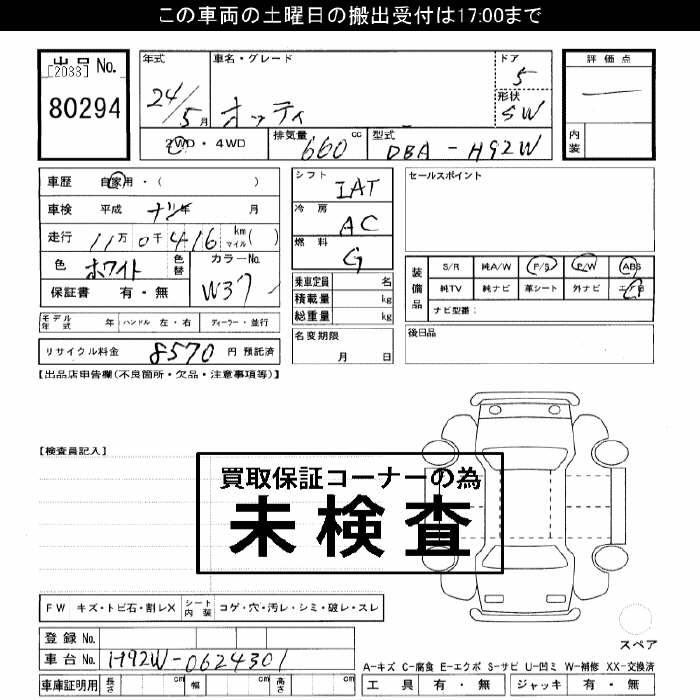 この車両の土曜日の搬出受付は17:00まで
出品No.
[2033]
80294
年式
24/5月
車名・グレード
オッティ
ドア
5
形状
SW
2WD・4WD
排気量
660cc
型式
DBA-H92W
評価点
内装
車歴 自家用・( )
車検 平成 ナシ年 月
走行 11万0千416 km マイル( )
色 ホワイト 色替
カラーNo.
W37
保証書 有・無
モデル年式 年 ハンドル 左・右 ディーラー・並行
リサイクル料金 8570 円 預託済
シフト
IAT
冷房
AC
燃料
G
乗車定員 名
積載量 kg
総重量 kg
名変期限
月 日
セールスポイント
装備品
S/R 純A/W P/S P/W ABS
純TV 純ナビ 革シート 外ナビ エアB
ナビ型番:
後日品
【出品店申告欄(不良箇所・欠品・注意事項等)】
【検査員記入】
買取保証コーナーの為
未検査
FW キズ・トビ石・割レX シート内装 コゲ・穴・汚レ・シミ・破レ・スレ
登録No.
車台No. H92W-0624301
車庫証明用 長さ cm 幅 cm 高さ cm
スペア
A-キズ C-腐食 E-エクボ S-サビ U-凹ミ W-補修 XX-交換済
工具 有・無 ジャッキ 有・無